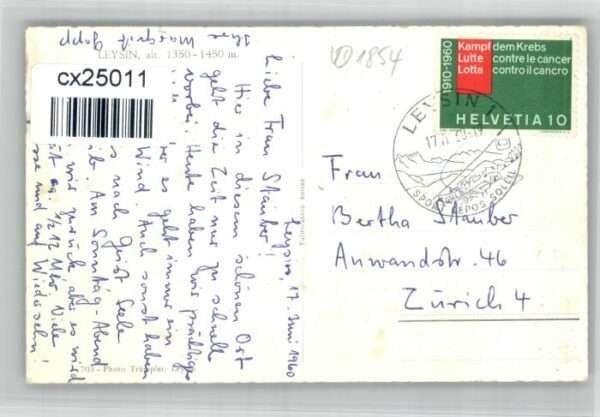 LEYSIN, alt. 1350-1450 m.
cx25011
Leysin, 17. Juni 1960
Liebe Frau Stauber!
Hier in diesem schönen Ort
geht die Zeit nur zu schnell
vorbei. Heute haben wir prächtiges
es geht immer ein
Wind. Auch sonst haben
s nach Geist Seele
ib. Am Sonntag-Abend
wir zurück, aber es wird
1/2 12 Uhr. Viele
sse und auf Wiedersehn!
Ihre
1854
1910-1960
Kampf dem Krebs
Lutte contre le cancer
Lotta contro il cancro
HELVETIA 10
LEYSIN 1
SPORT REPOS SOLEIL
Frau
Bertha Stauber
Anwandstr. 46
Zürich 4
703 - Photo